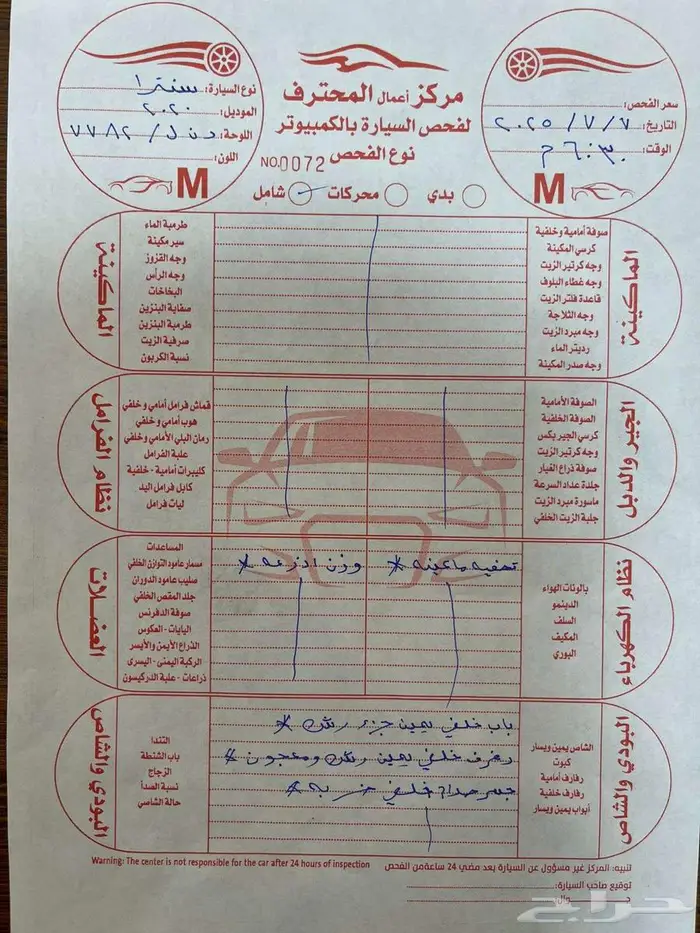 سعر الفحص:
التاريخ: ٢٠٢٥/٧/٧
الوقت: ٦:٣٠ م
M
مركز أعمال المحترف
لفحص السيارة بالكمبيوتر
نوع الفحص
NO.0072
بدي
محركات
شامل
نوع السيارة: سنترا
الموديل: ٢٠٢٠
اللوحة: ٧٧٨٢
اللون:
M
الماكينة
صوفة أمامية وخلفية
كرسي المكينة
وجه كرتير الزيت
وجه غطاء البلوف
قاعدة فلتر الزيت
وجه الثلاجة
وجه مبرد الزيت
رديتر الماء
وجه صدر المكينة
طرمبة الماء
سير مكينة
وجه القزوز
وجه الرأس
البخاخات
صفاية البنزين
طرمبة البنزين
صرفية الزيت
نسبة الكربون
الماكينة
الجير والدبل
الصوفة الأمامية
الصوفة الخلفية
كرسي الجير بكس
وجه كرتير الزيت
صوفة ذراع الغيار
جلدة عداد السرعة
ماسورة مبرد الزيت
جلبة الزيت الخلفي
قماش فرامل أمامي وخلفي
هوب أمامي وخلفي
رمان البلي الأمامي وخلفي
علبة الفرامل
كليبرات أمامية - خلفية
كابل فرامل اليد
ليات فرامل
نظام الفرامل
نظام الكهرباء
بالونات الهواء
الدينمو
السلف
المكيف
البوري
تصفيه ماكينه *
وزن اذرعه *
المساعدات
مسمار عامود التوازن الخلفي
صليب عامود الدوران
جلد المقص الخلفي
صوفة الدفرنس
اليايات - العكوس
الذراع الأيمن والأيسر
الركبة اليمنى - اليسرى
ذراعات - علبة الدركيسون
العضلات
البودي والشاص
الشاص يمين ويسار
كبوت
رفارف أمامية
رفارف خلفية
أبواب يمين ويسار
باب خلفي يمين جزء رش *
رفرف خلفي يمين رش ومعجون *
جسر صدام خلفي ضربه *
التندا
باب الشنطة
الزجاج
نسبة الصدأ
حالة الشاصي
البودي والشاص
تنبيه: المركز غير مسؤول عن السيارة بعد مضي 24 ساعة من الفحص
Warning: The center is not responsible for the car after 24 hours of inspection
توقيع صاحب السيارة:
حراج